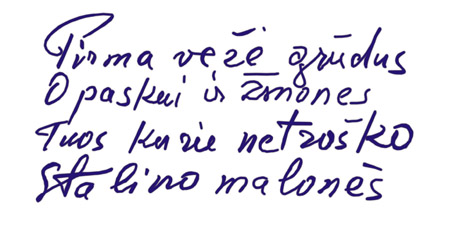 Pirma vežė grūdus
O paskui ir žmones
Tuos kurie netroško
Stalino malonės